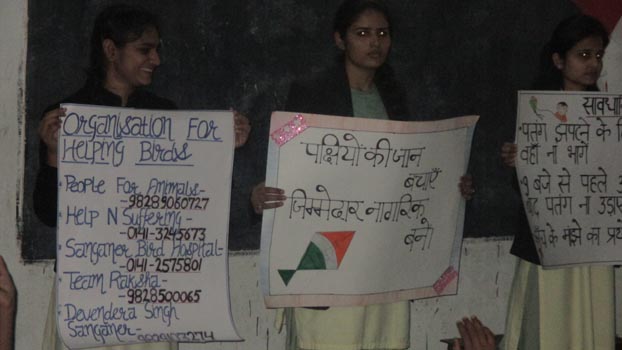 Organisation For
Helping Birds
People For Animals-
-9828506072​7
Help N Suffering-
-0141-3245673
Sanganer Bird Hospital-
-0141-2575801
Team Raksha-
-9828500065
Devendera Singh
Sanganer-
पक्षियों की जान
बचाएँ
जिम्मेदार नागरिक
बनो
पतंग झपटने के
वहाँ ना भागे
बजे से पहले
पतंग ना उड़ाए
के मंझे का